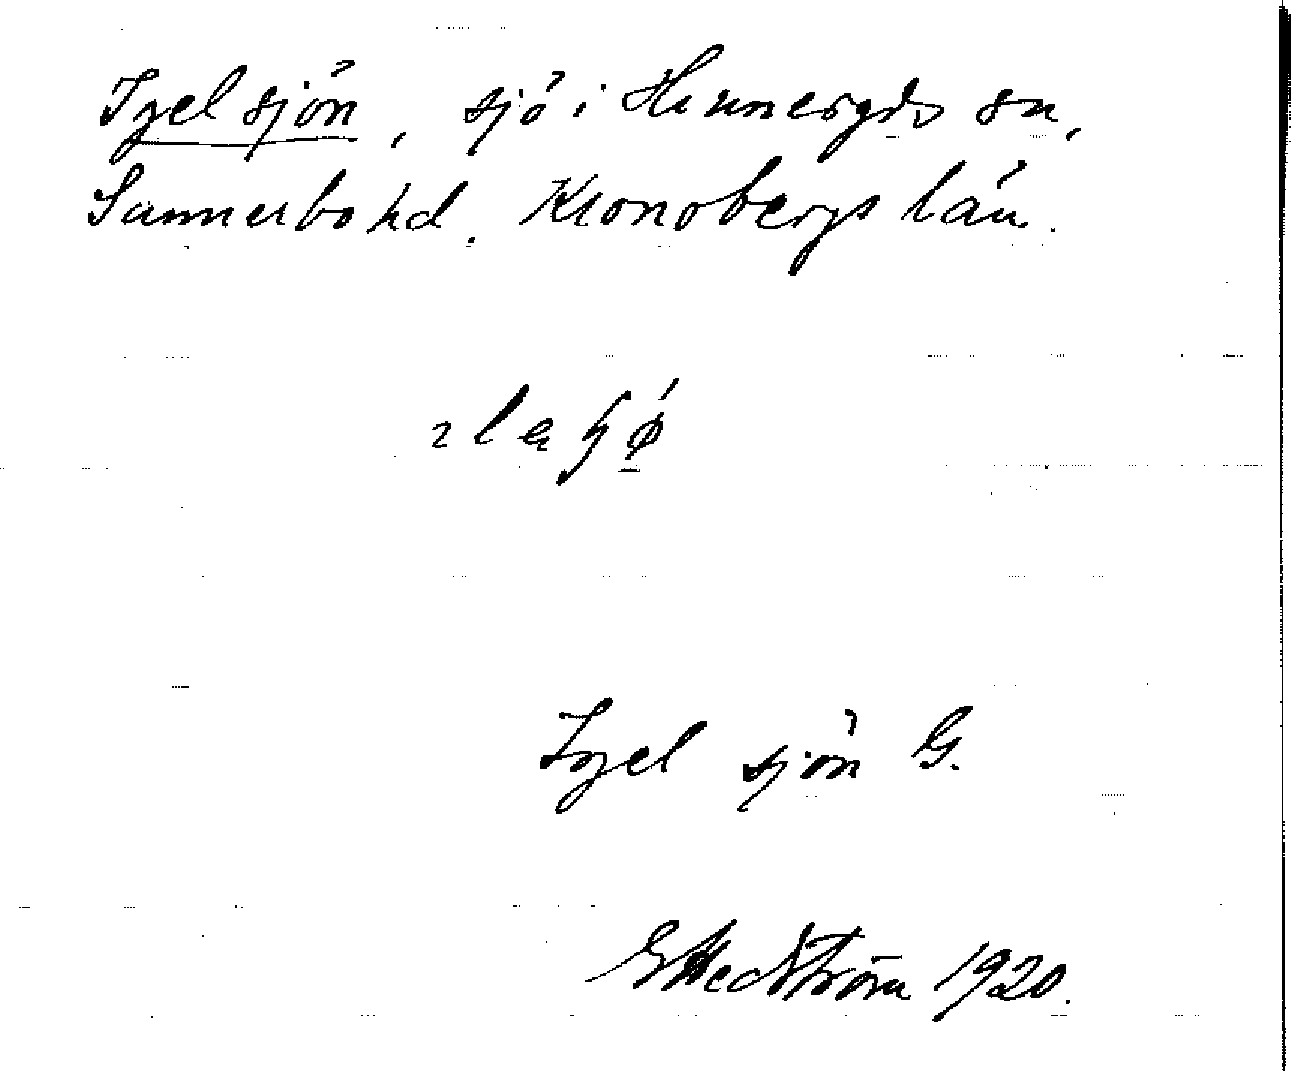 Igelsjön, sjö i Hinneryds sn,
Sunnerbo hd. Kronobergs län.
Igel sjön G.
G Hedström 1920.